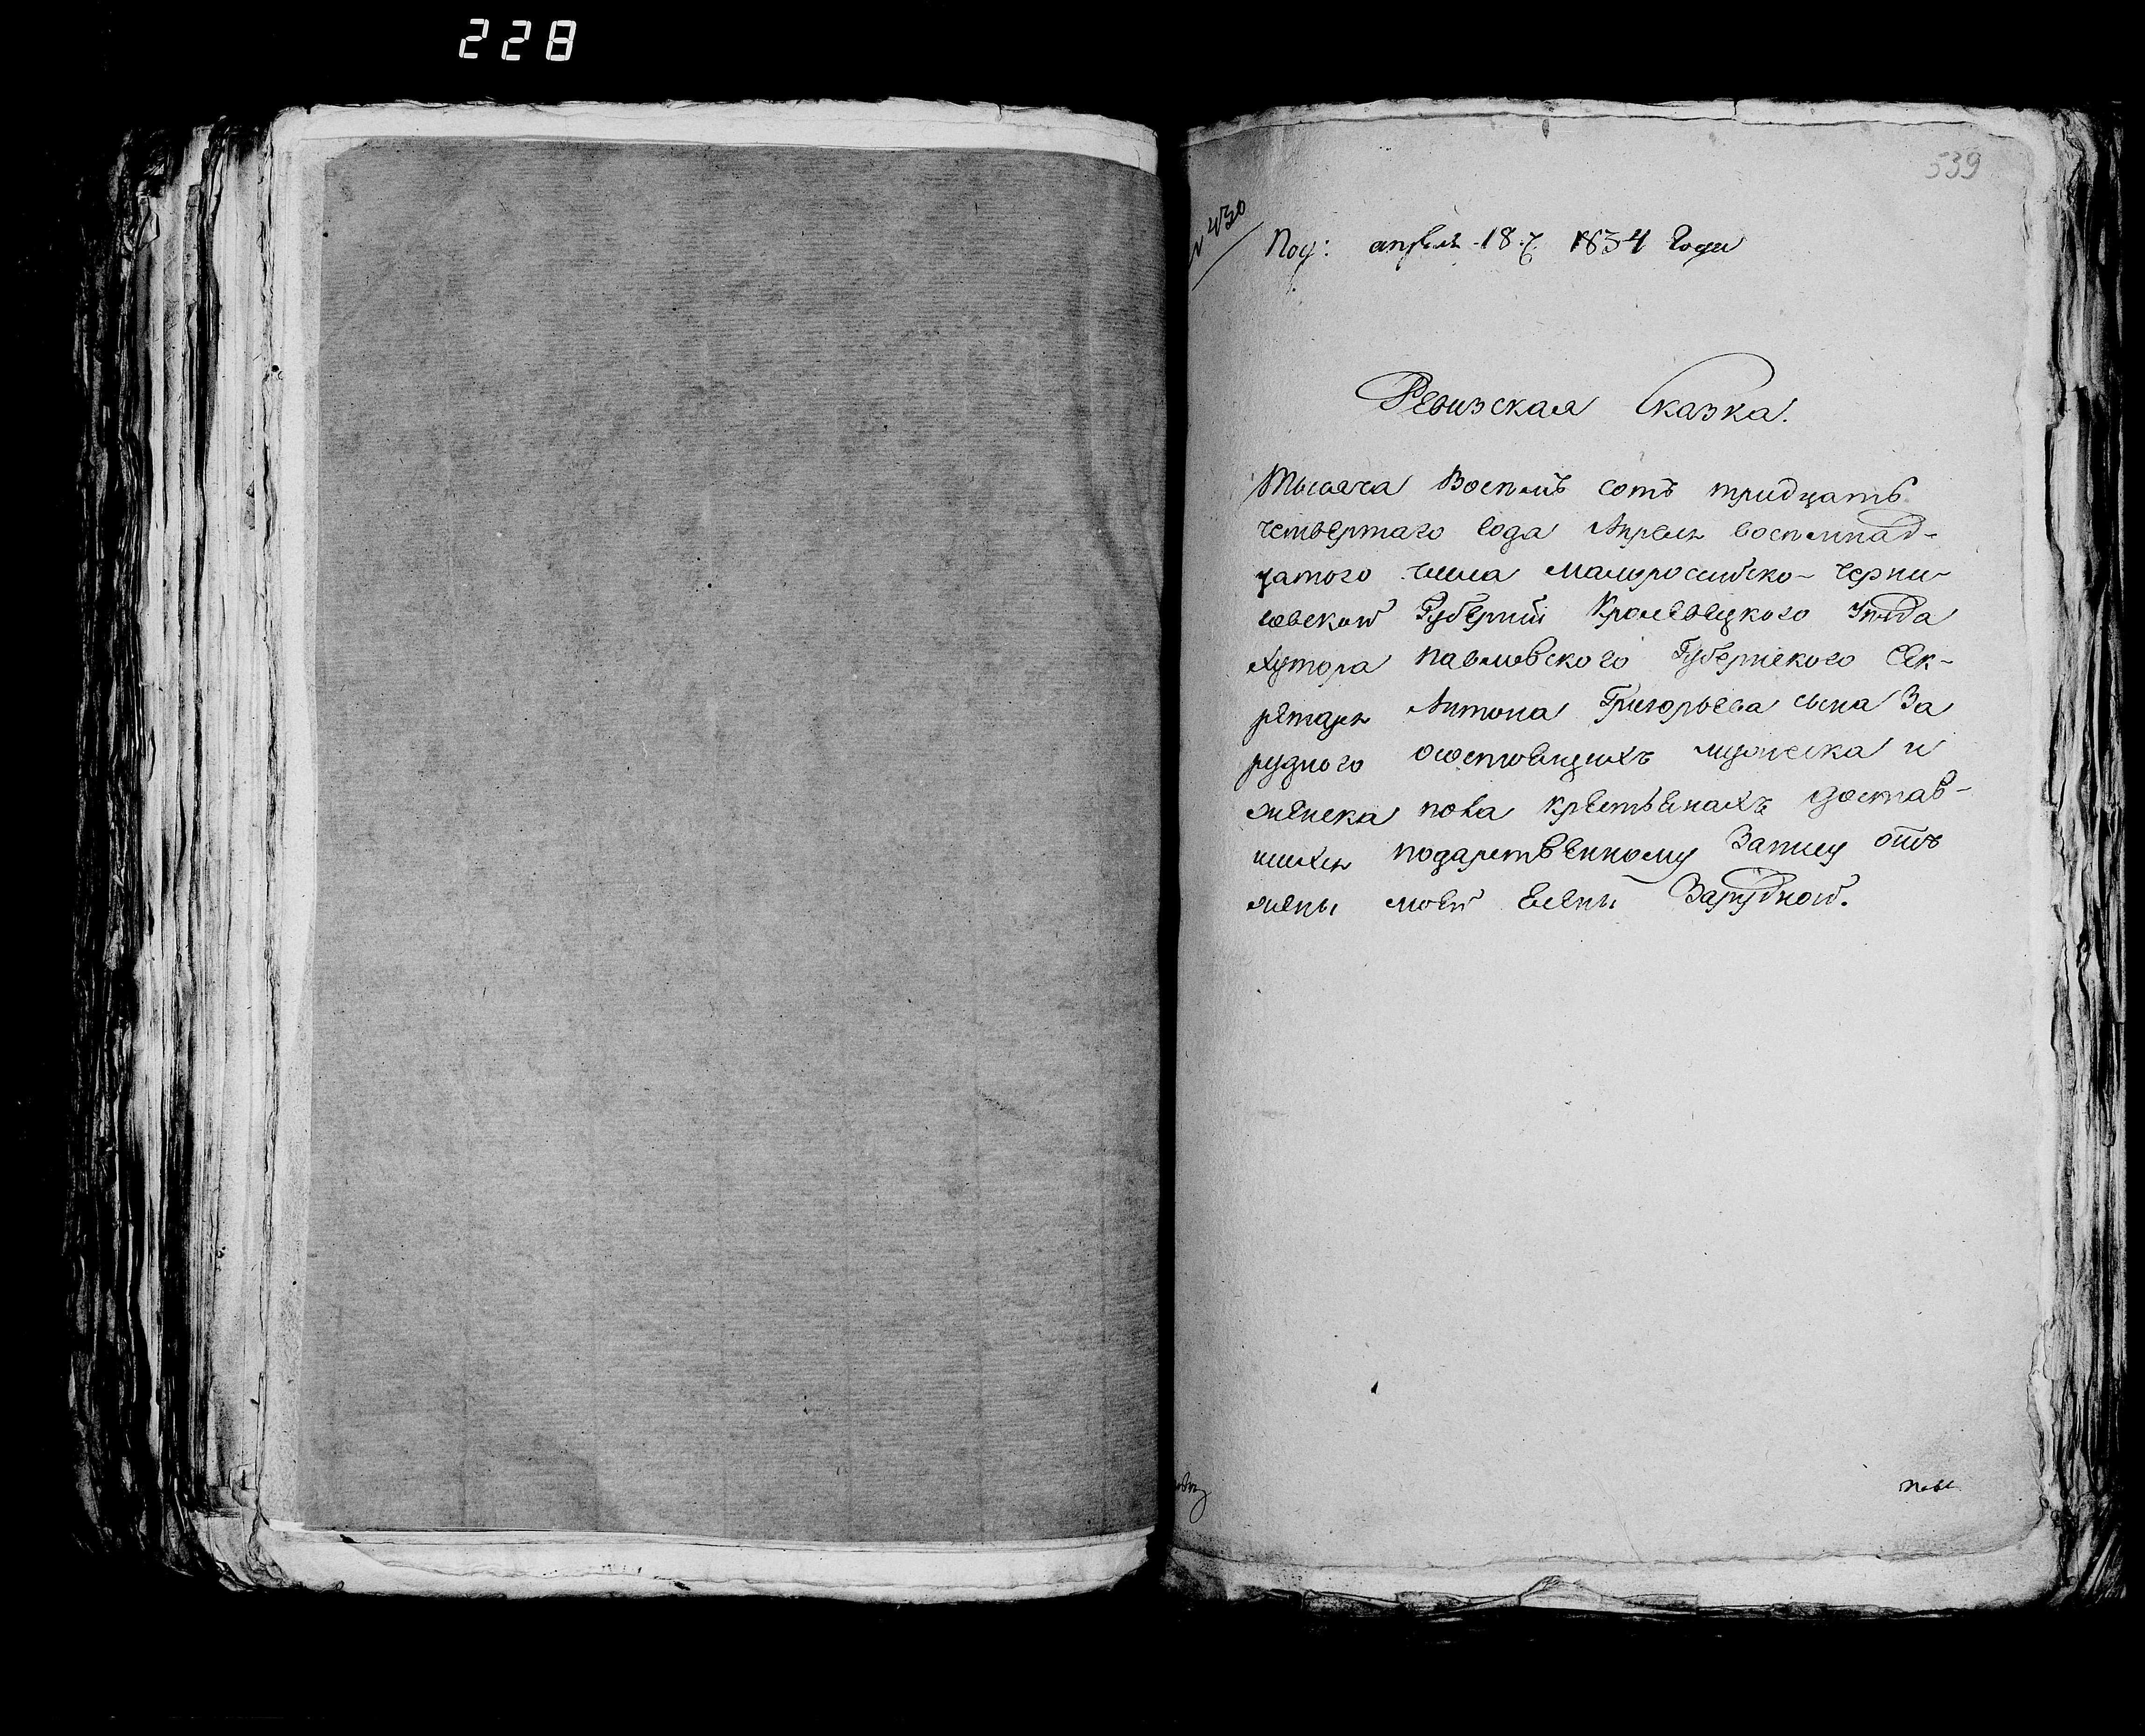 228
539
№ 430
Пол: апреля 18 ч. 1834 Года
Ревизская Сказка.
Тысяча Восемь сотъ тридцать
четвертаго года Апреля восемнад-
цатого числа малоросийско-Черни-
говской Губернии Кролевецкого Уезда
Хутора павловского Губернского Сек-
ретаря Антона Григорьева сына За
рудного о состоящихъ мужеска и
женска пола крестьянахъ достав-
шихся подарственному Запису отъ
жены моей Елены Зарудной.